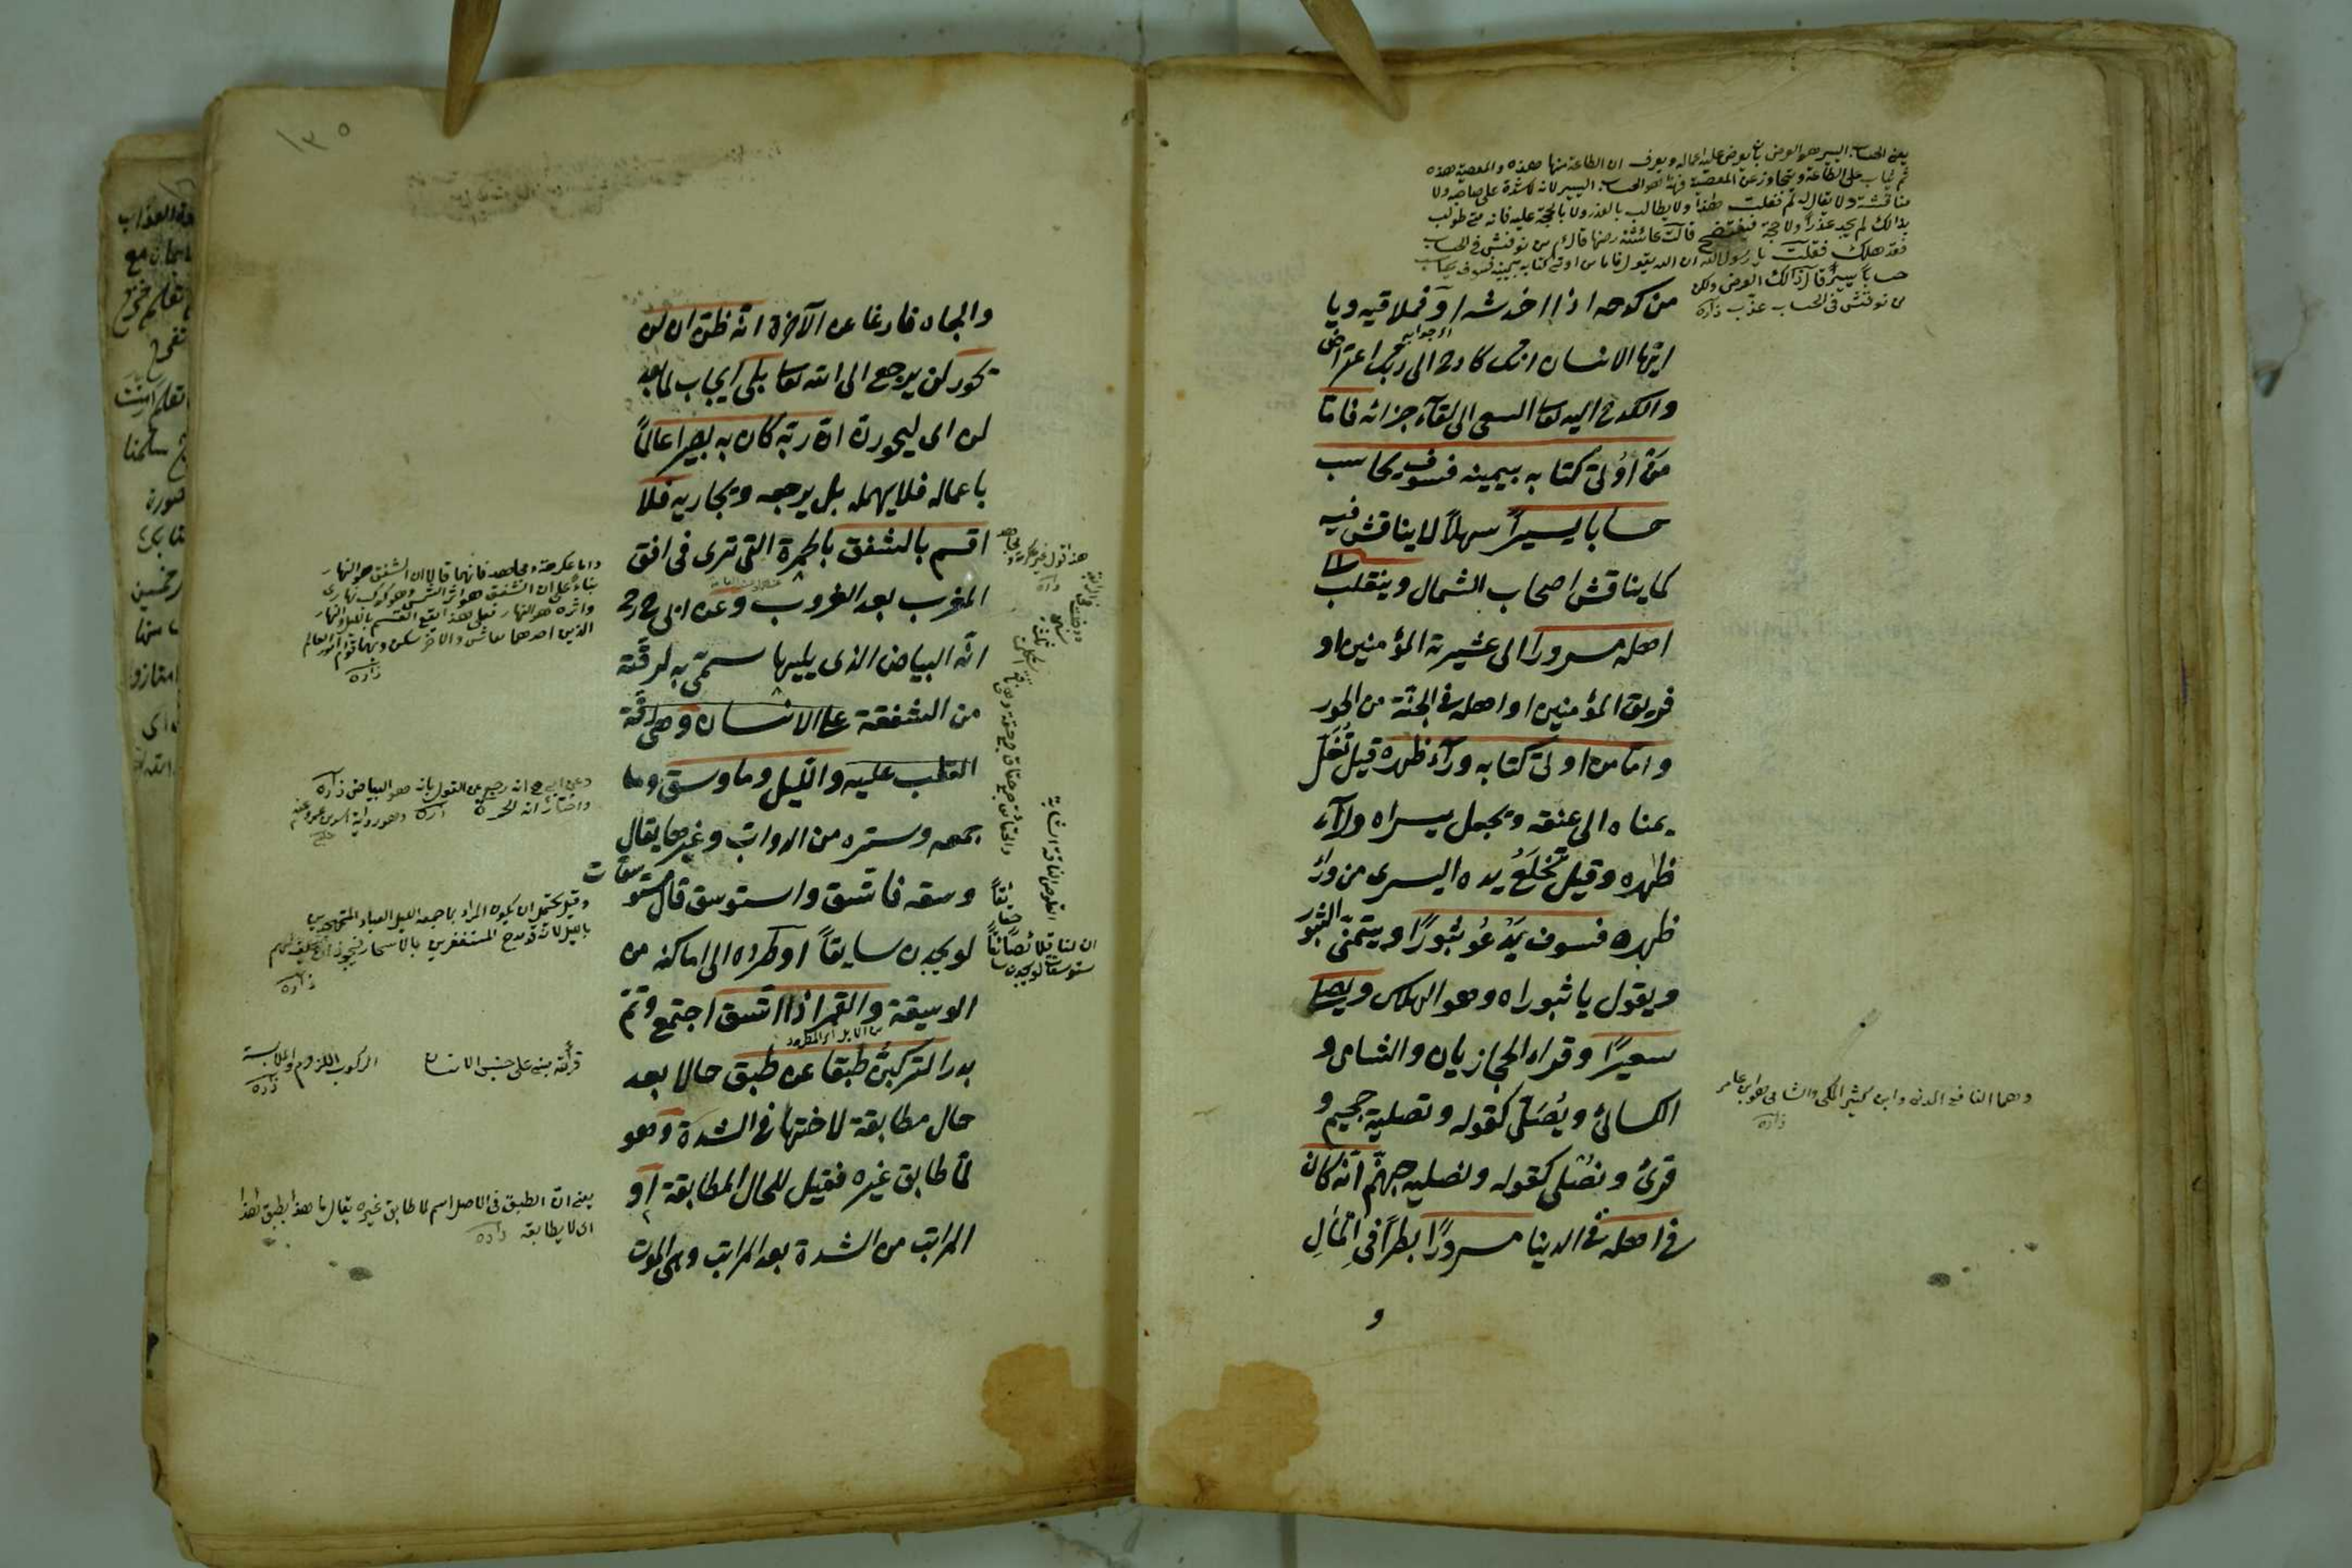 يعنى الحساب اليسير هو العرض بان يعرض عليه اعماله ويعرف ان الطاعة منها هذه والمعصية هذه
ثم يثاب على الطاعة ويتجاوز عن المعصية فهذا هو الحساب اليسير لانه لا شدة على صاحبه ولا
مناقشة ولا يقال له لم فعلت هذا ولا يطالب بالعذر ولا بالحجة عليه فانه متى طولب
بذالك لم يجد عذرا ولا حجة فيفتضح قالت عائشة رضها قال م من نوقش فى الحساب
فقد هلك فقلت يا رسول الله ان الله يقول فاما من اوتى كتابه بيمينه فسوف يحاسب
حسابا يسيرا قال ذالك العرض ولكن
من نوقش فى الحساب عذب زاده
من كدحه اذا خدشه او فملاقيه ويا
ايها الانسان انك كادح الى ربك اعتراض
والكدح اليه تعا السعى الى لقآء جزائه فامّا
مَنْ اوُتى كتابه بيمينه فسوف يحاسب
حسابا يسيرًا سهلاً لا يناقش فيه
كما يناقش اصحاب الشمال وينقلب الى
اهله مسرورا الى عشيرته المؤمنين او
فريق المؤمنين او اهله فى الجنّة من الحور
وامّا من اوتى كتابه ورآء ظهره قيل تُغَلّ
يمناه الى عنقه ويجعل يسراه ورآء
ظهره وقيل تُخلَعُ يده اليسرى من وراء
ظهره فسوف يَدْعُو ثبورًا ويتمنّى الثبور
ويقول يا ثبوراه وهو الهلاك ويصلى
سعيرًا وقراء الحجازيان والشامى و
الكسائى ويُصَلّى كقوله وتصلية جحيم و
قرئ ونُصْلى كقوله ونصليه جهنّم انّه كان
فى اهله فى الدينا مسرورًا بطرًا فى المالِ
و
وهما النافع المدنى وابن كثير المكى والشامى هو ابن عامر
زاده
١٣٥
والجاه فارغا عن الآخرة انّه ظنّ ان لن
يحور لن يرجع الى الله تعا بلى ايجاب لما بعد
لن اى ليحورنّ انّ ربّه كان به بصيرا عالماً
باعماله فلا يهمله بل يرجعه ويجازيه فلا
اقسم بالشفق بالحمرة التى ترى فى افق
المغرب بعد الغروب وعن ابى ح رح
انّه البياض الذى يليها سمّى به لرقّته
من الشفقة على الانسان وهى رقّة
القلب عليه والليل وما وسق وما
جمعه وستره من الدوابّ وغيرها يقال
وسقه فاتّسق واستوسق قال مستوسقات
لو يجدن سايقاً او طرده الى اماكنه من
الوسيقة والقمر اذا اتّسق اجتمع وتمّ
من الابل اى المطرود
بدرا لتركبنّ طبقا عن طبق حالا بعد
حال مطابقة لاختها فى الشدة وهو
لما طابق غيره فقيل للحال المطابقة او
المراتب من الشدة بعد المراتب وهى الموت
هذا قول غير عكرمة ومجاهد
زاده
واما عكرمة ومجاهد فانهما قالا ان الشفق هو النهار
بناء على ان الشفق هو اثر الشمس وهو كوكب نهارى
واثره هو النهار فعلى هذا يقع القسم بالليل والنهار
الذين احدهما معاش والاخر سكن وبهما قوام امور العالم
زاده
وعن ابى ح انه رجع عن القول بانه هو البياض زاده
واختار انه الحمرة زاده وهو رواية اسد بن عمرو عنه
وقيل يحتمل ان يكون المراد بما جمعه الليل العباد المتهجدين
بالليل لانه تعا مدح المستغفرين بالاسحار فيجوز ان يحلف بهم
زاده
ان لنا قلائصا حقائقا
مستوسقات لو يجدن سايقا
القلوص الناقة الشابة
قرأته بنى على جنس الانسان
الركوب اللزوم والملابسة
زاده
يعنى ان الطبق فى الاصل اسم لما طابق غيره يقال ما هذا بطبق لهذا
اى لا يطابقه زاده